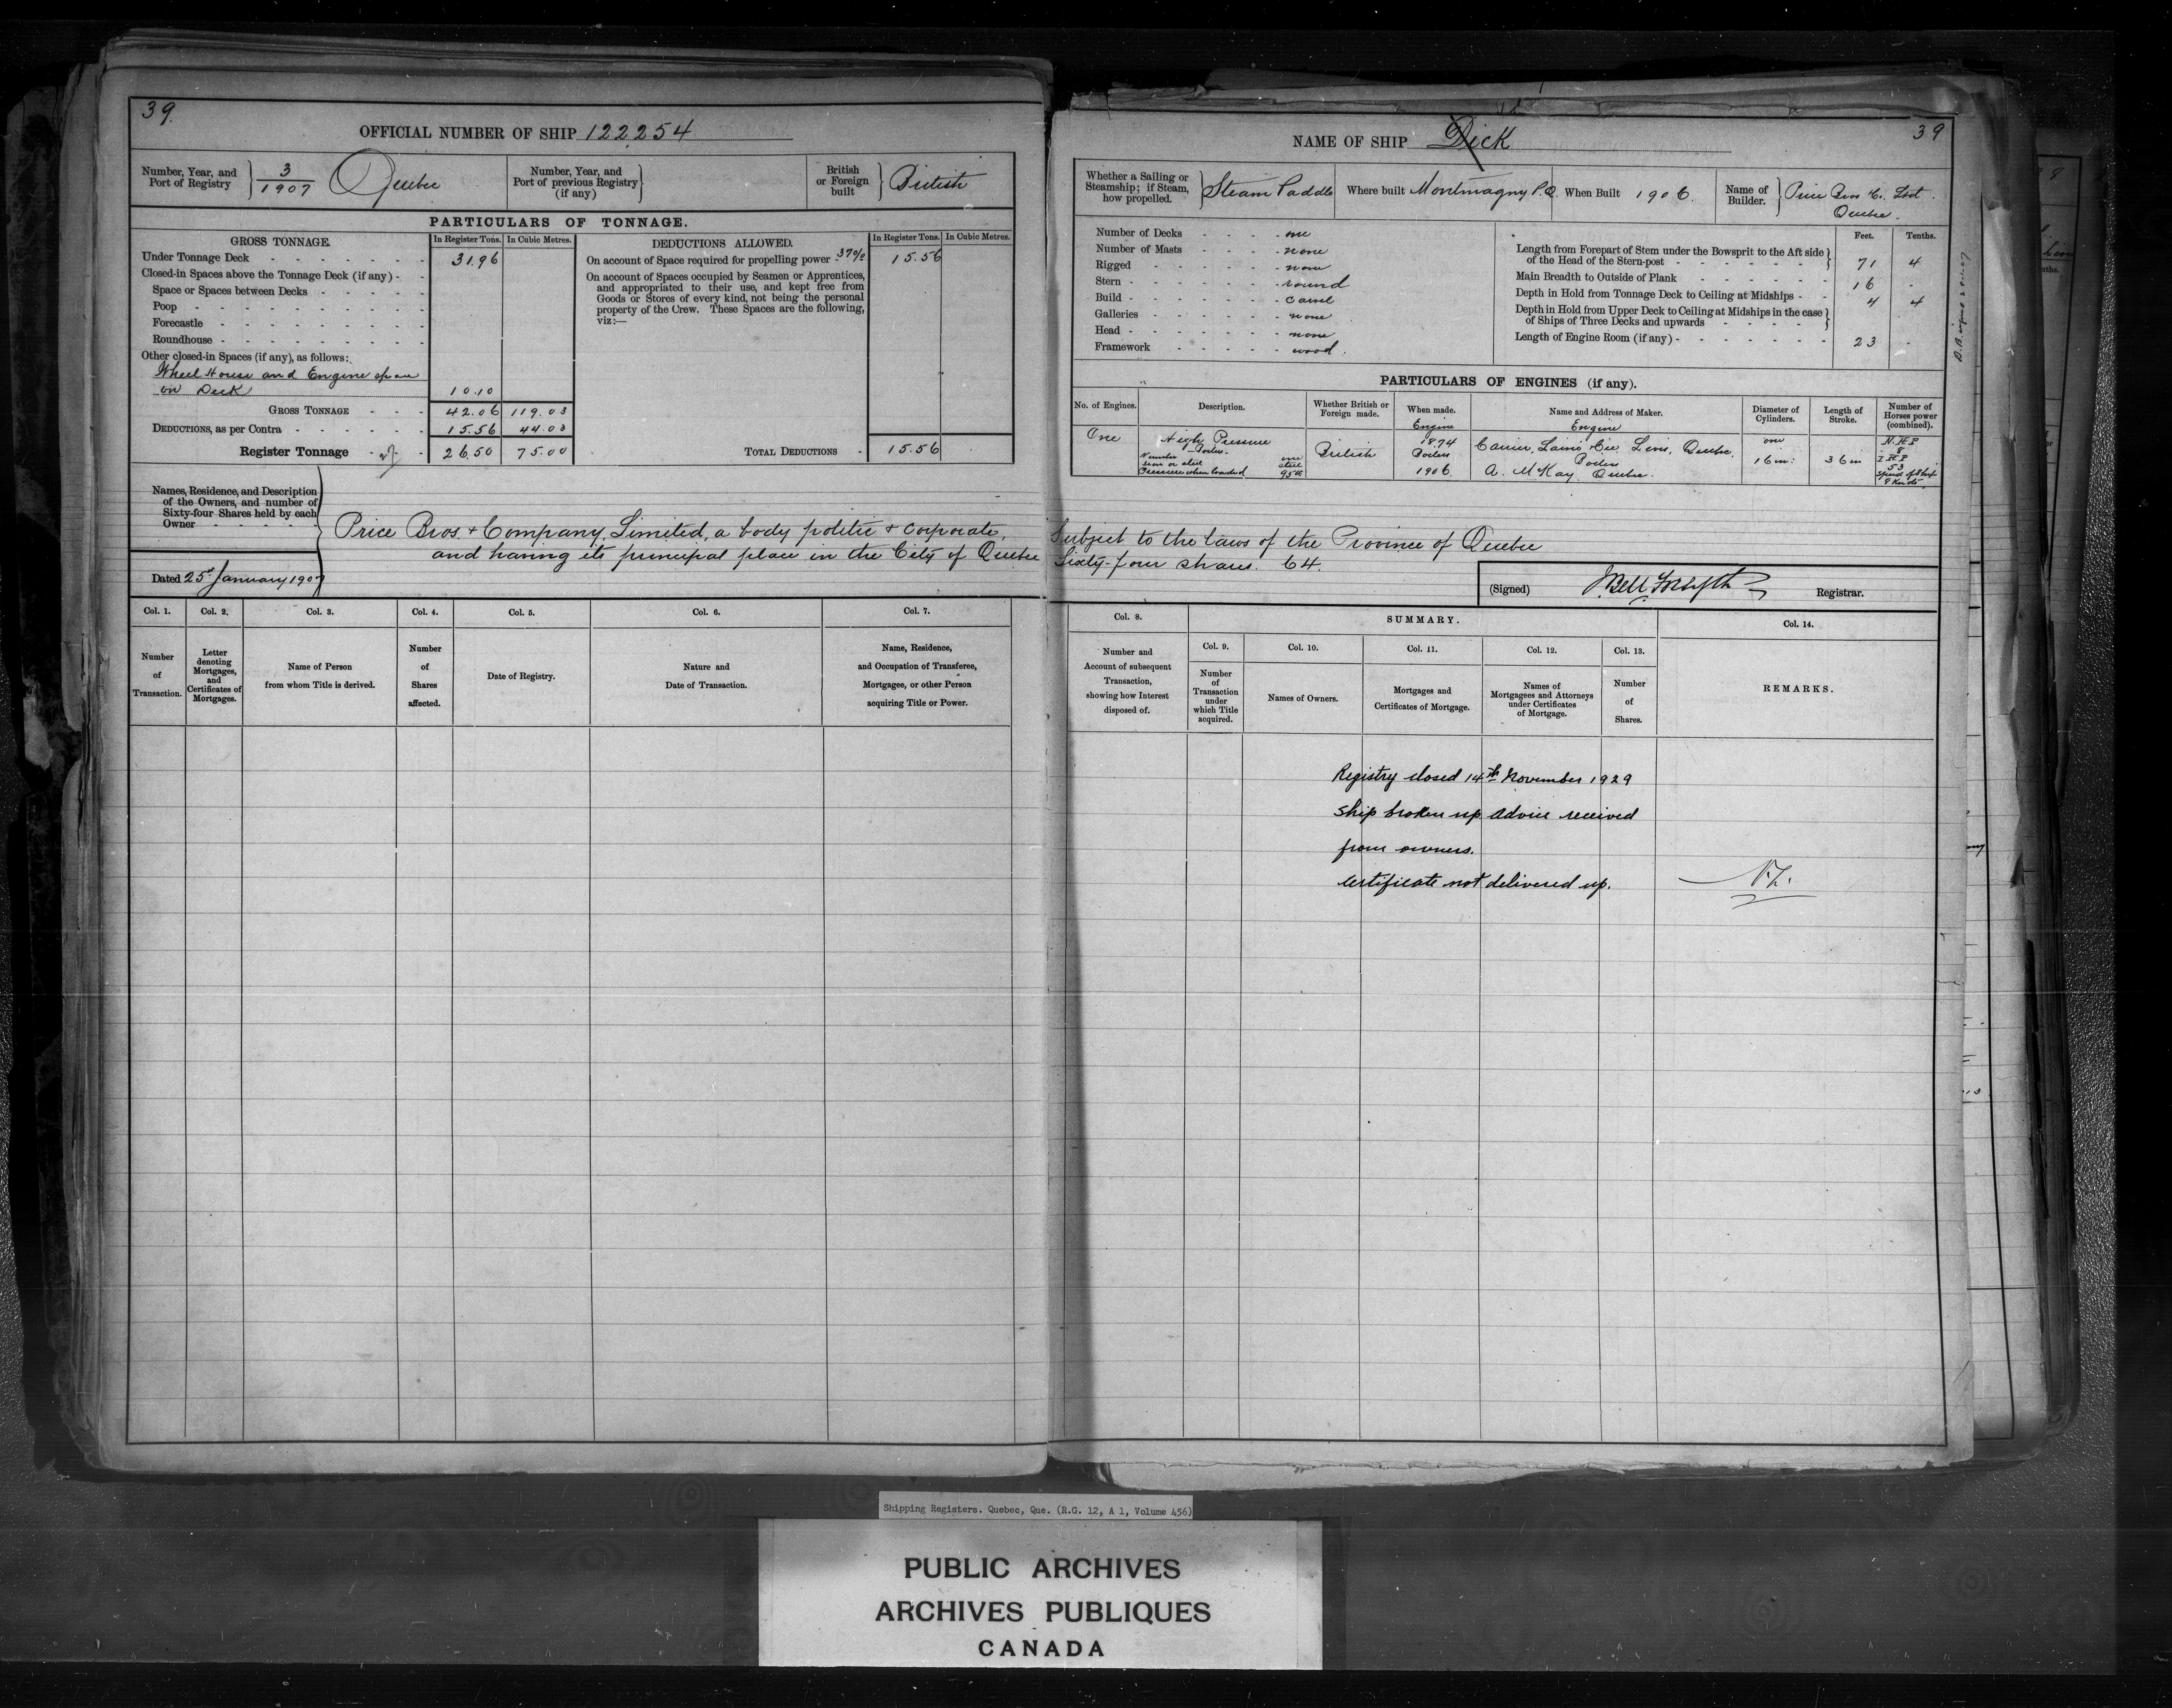 39.
OFFICIAL NUMBER OF SHIP 122254
Number, Year, and Port of Registry } 3/1907 Quebec
Number, Year, and Port of previous Registry (if any) }
British or Foreign built } British
PARTICULARS OF TONNAGE.
GROSS TONNAGE. In Register Tons. In Cubic Metres.
Under Tonnage Deck 31.96
Closed-in Spaces above the Tonnage Deck (if any)
Space or Spaces between Decks
Poop
Forecastle
Roundhouse
Other closed-in Spaces (if any), as follows:
Wheel House and Engine space
on Deck 10.10
GROSS TONNAGE 42.06 119.03
DEDUCTIONS, as per Contra 15.56 44.03
Register Tonnage 26.50 75.00
DEDUCTIONS ALLOWED. In Register Tons. In Cubic Metres.
On account of Space required for propelling power 37% 15.56
On account of Spaces occupied by Seamen or Apprentices,
and appropriated to their use, and kept free from
Goods or Stores of every kind, not being the personal
property of the Crew. These Spaces are the following,
viz:—
TOTAL DEDUCTIONS 15.56
Names, Residence, and Description
of the Owners, and number of
Sixty-four Shares held by each
Owner
Price Bros. & Company, Limited, a body politic & corporate,
and having its principal place in the City of Quebec
Dated 25th January 1907
Col. 1. Col. 2. Col. 3. Col. 4. Col. 5. Col. 6. Col. 7.
Number of Transaction.
Letter denoting Mortgages, and Certificates of Mortgages.
Name of Person from whom Title is derived.
Number of Shares affected.
Date of Registry.
Nature and Date of Transaction.
Name, Residence, and Occupation of Transferee, Mortgagee, or other Person acquiring Title or Power.
NAME OF SHIP Dick
39
Whether a Sailing or Steamship; if Steam, how propelled. } Steam Paddle
Where built Montmagny P.Q.
When Built 1906.
Name of Builder. } Price Bros Co. Ltd.
Quebec.
Number of Decks one
Number of Masts none
Rigged none
Stern round
Build carvel
Galleries none
Head none
Framework wood.
Feet. Tenths.
Length from Forepart of Stem under the Bowsprit to the Aft side of the Head of the Stern-post 71 4
Main Breadth to Outside of Plank 16 .
Depth in Hold from Tonnage Deck to Ceiling at Midships 4 4
Depth in Hold from Upper Deck to Ceiling at Midships in the case of Ships of Three Decks and upwards
Length of Engine Room (if any) 23 .
PARTICULARS OF ENGINES (if any).
No. of Engines. Description. Whether British or Foreign made. When made. Name and Address of Maker. Diameter of Cylinders. Length of Stroke. Number of Horses power (combined).
Engine Engine
One High Pressure British 1874 Carrier, Lainé & Cie, Levis, Quebec. one 16 in. 36 in N.H.P. 8
Boilers. Boilers Boilers I H P 53
Number one
Iron or steel steel
Pressure when loaded 95 lb 1906. A. McKay. Quebec. Speed of Ship 8 Knots
Subject to the laws of the Province of Quebec
Sixty-four shares. 64.
(Signed) J. Bell Forsyth Registrar.
Col. 8. SUMMARY. Col. 14.
Col. 9. Col. 10. Col. 11. Col. 12. Col. 13.
Number and Account of subsequent Transaction, showing how Interest disposed of.
Number of Transaction under which Title acquired.
Names of Owners.
Mortgages and Certificates of Mortgage.
Names of Mortgagees and Attorneys under Certificates of Mortgage.
Number of Shares.
REMARKS.
Registry closed 14th November 1929
Ship broken up advice received
from owners.
Certificate not delivered up.
Shipping Registers. Quebec, Que. (R.G. 12, A 1, Volume 456)
PUBLIC ARCHIVES
ARCHIVES PUBLIQUES
CANADA